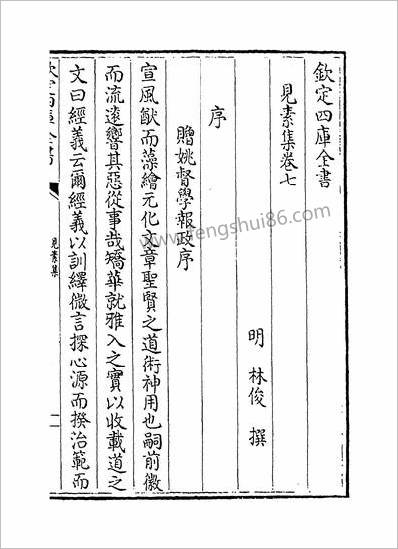 欽定四庫全書
見素集卷七
明 林俊 撰
序
贈姚督學報政序
宣風猷而藻繪元化文章聖賢之道術神用也嗣前徽
而流遠響其惡從事哉矯華就雅入之實以收載道之
文曰經義云爾經義以訓繹微言探心源而揆治範而
見素集
www.fengshui86.com